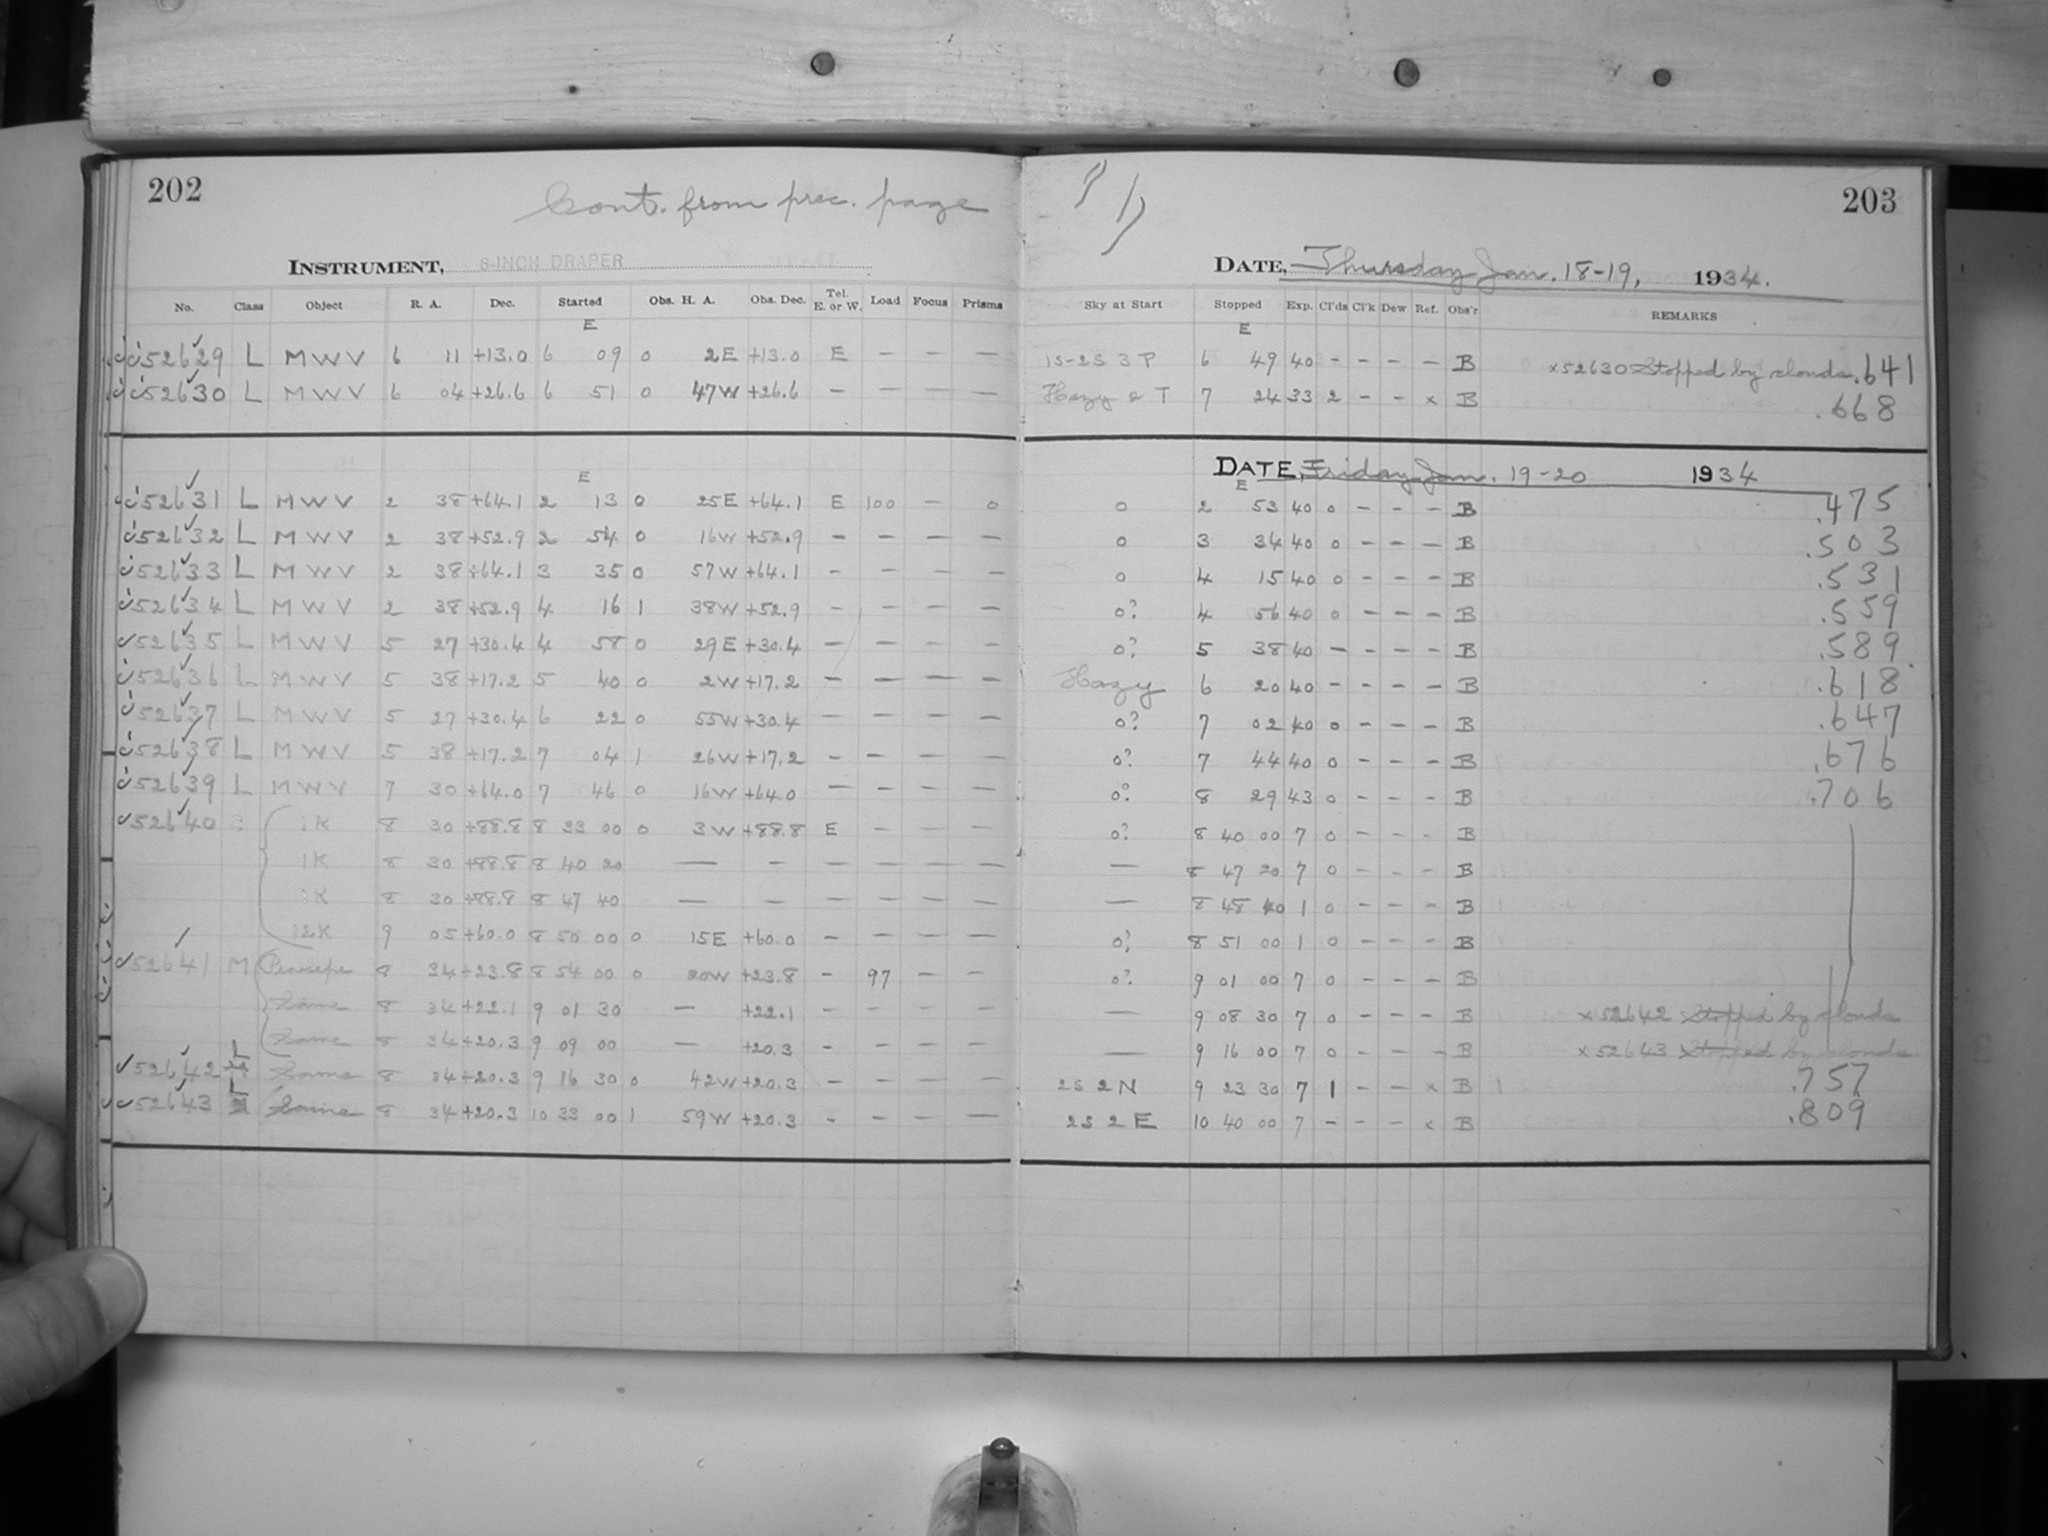 202
Cont. from prec. page
INSTRUMENT, 8-INCH DRAPER
No. Class Object R. A. Dec. Started Obs. H. A. Obs. Dec. Tel. E. or W. Load Focus Prisms
E
52629 L M W V 6 11 +13.0 6 09 0 2E +13.0 E — — —
52630 L M W V 6 04 +26.6 6 51 0 47W +26.6 — — — —
E
52631 L M W V 2 38 +64.1 2 13 0 25E +64.1 E 100 — 0
52632 L M W V 2 38 +52.9 2 54 0 16W +52.9 — — — —
52633 L M W V 2 38 +64.1 3 35 0 57W +64.1 — — — —
52634 L M W V 2 38 +52.9 4 16 1 38W +52.9 — — — —
52635 L M W V 5 27 +30.4 4 58 0 29E +30.4 — — — —
52636 L M W V 5 38 +17.2 5 40 0 2W +17.2 — — — —
52637 L M W V 5 27 +30.4 6 22 0 55W +30.4 — — — —
52638 L M W V 5 38 +17.2 7 04 1 26W +17.2 — — — —
52639 L M W V 7 30 +64.0 7 46 0 16W +64.0 — — — —
52640 8 30 +88.8 8 33 00 0 3W +88.8 E — — —
1K 8 30 +88.8 8 40 20 — — — — — —
8 30 +88.8 8 47 40 — — — — — —
12K 9 05 +60.0 8 50 00 0 15E +60.0 — — — —
52641 M Praesepe 8 34 +23.8 8 54 00 0 20W +23.8 — 97 — —
Same 8 34 +22.1 9 01 30 — +22.1 — — — —
Same 8 34 +20.3 9 09 00 — +20.3 — — — —
52642 L Same 8 34 +20.3 9 16 30 0 42W +20.3 — — — —
52643 L Same 8 34 +20.3 10 33 00 1 59W +20.3 — — — —
203
DATE, Thursday Jan. 18-19, 1934.
Sky at Start Stopped Exp. Cl'ds Cl'k Dew Ref. Obs'r REMARKS
E
1S-2S 3 P 6 49 40 — — — — B ×52630 Stopped by clouds .641
Hazy 2 T 7 24 33 2 — — × B .668
DATE Friday Jan. 19-20 1934
E
0 2 53 40 0 — — — B .475
0 3 34 40 0 — — — B .503
0 4 15 40 0 — — — B .531
0? 4 56 40 0 — — — B .559
0? 5 38 40 — — — — B .589
Hazy 6 20 40 — — — — B .618
0? 7 02 40 0 — — — B .647
0? 7 44 40 0 — — — B .676
0? 8 29 43 0 — — — B .706
0? 8 40 00 7 0 — — — B
— 8 47 20 7 0 — — — B
— 8 48 40 1 0 — — — B
0? 8 51 00 1 0 — — — B
0? 9 01 00 7 0 — — — B
— 9 08 30 7 0 — — — B ×52642 Stopped by clouds
— 9 16 00 7 0 — — — B ×52643 Stopped by clouds
2S 2 N 9 23 30 7 1 — — × B .757
2S 2 E 10 40 00 7 — — — × B .809